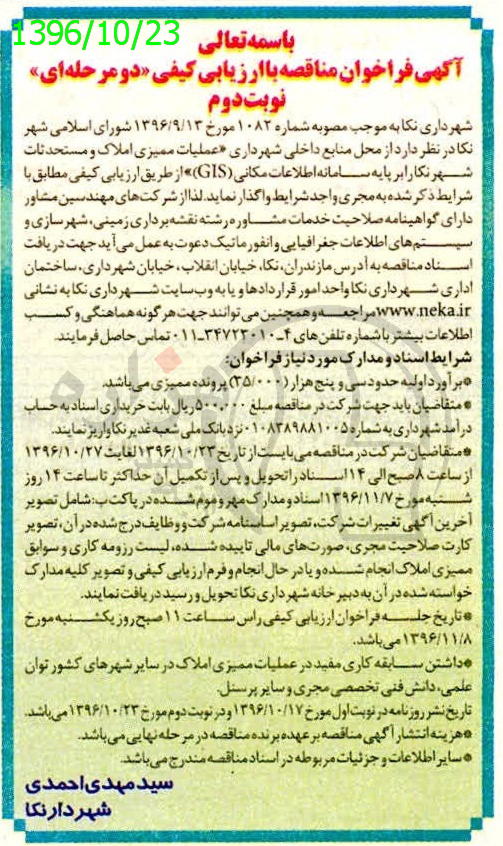 1396/10/23
باسمه تعالی
آگهی فراخوان مناقصه با ارزیابی کیفی «دو مرحله‌ای»
نوبت دوم
شهرداری نکا به موجب مصوبه شماره ۱۰۸۲ مورخ ۱۳۹۶/۹/۱۳ شورای اسلامی شهر
نکا در نظر دارد از محل منابع داخلی شهرداری «عملیات ممیزی املاک و مستحدثات
شهر نکا را بر پایه سامانه اطلاعات مکانی (GIS)» از طریق ارزیابی کیفی مطابق با
شرایط ذکر شده به مجری واجد شرایط واگذار نماید. لذا از شرکت‌های مهندسین مشاور
دارای گواهینامه صلاحیت خدمات مشاوره رشته نقشه‌برداری زمینی، شهرسازی و
سیستم‌های اطلاعات جغرافیایی و انفورماتیک دعوت به عمل می‌آید جهت دریافت
اسناد مناقصه به آدرس مازندران، نکا، خیابان انقلاب، خیابان شهرداری، ساختمان
اداری شهرداری نکا واحد امور قراردادها و یا به وب‌سایت شهرداری نکا به نشانی
www.neka.ir مراجعه و همچنین می‌توانند جهت هرگونه هماهنگی و کسب
اطلاعات بیشتر با شماره تلفن‌های ۴-۳۴۷۲۳۰۱۰-۰۱۱ تماس حاصل فرمایند.
شرایط اسناد و مدارک مورد نیاز فراخوان:
*برآورد اولیه حدود سی و پنج هزار (۳۵/۰۰۰) پرونده ممیزی می‌باشد.
*متقاضیان باید جهت شرکت در مناقصه مبلغ ۵۰۰,۰۰۰ ریال بابت خریداری اسناد به حساب
درآمد شهرداری به شماره ۰۱۰۸۳۸۹۸۸۱۰۰۵ نزد بانک ملی شعبه غدیر نکا واریز نمایند.
*متقاضیان شرکت در مناقصه می‌بایست از تاریخ ۱۳۹۶/۱۰/۲۳ لغایت ۱۳۹۶/۱۰/۲۷
از ساعت ۸ صبح الی ۱۴ اسناد را تحویل و پس از تکمیل آن حداکثر تا ساعت ۱۴ روز
شنبه مورخ ۱۳۹۶/۱۱/۷ اسناد و مدارک مهر و موم شده در پاکت ب: شامل تصویر
آخرین آگهی تغییرات شرکت، تصویر اساسنامه شرکت و وظایف درج شده در آن، تصویر
کارت صلاحیت مجری، صورت‌های مالی تاییده شده، لیست رزومه کاری و سوابق
ممیزی املاک انجام شده و یا در حال انجام و فرم ارزیابی کیفی و تصویر کلیه مدارک
خواسته شده در آن به دبیرخانه شهرداری نکا تحویل و رسید دریافت نمایند.
*تاریخ جلسه فراخوان ارزیابی کیفی راس ساعت ۱۱ صبح روز یکشنبه مورخ
۱۳۹۶/۱۱/۸ می‌باشد.
*داشتن سابقه کاری مفید در عملیات ممیزی املاک در سایر شهرهای کشور توان
علمی، دانش فنی تخصصی مجری و سایر پرسنل.
تاریخ نشر روزنامه در نوبت اول مورخ ۱۳۹۶/۱۰/۱۷ و در نوبت دوم مورخ ۱۳۹۶/۱۰/۲۳ می‌باشد.
*هزینه انتشار آگهی مناقصه بر عهده برنده مناقصه در مرحله نهایی می‌باشد.
*سایر اطلاعات و جزئیات مربوطه در اسناد مناقصه مندرج می‌باشد.
سید مهدی احمدی
شهردار نکا